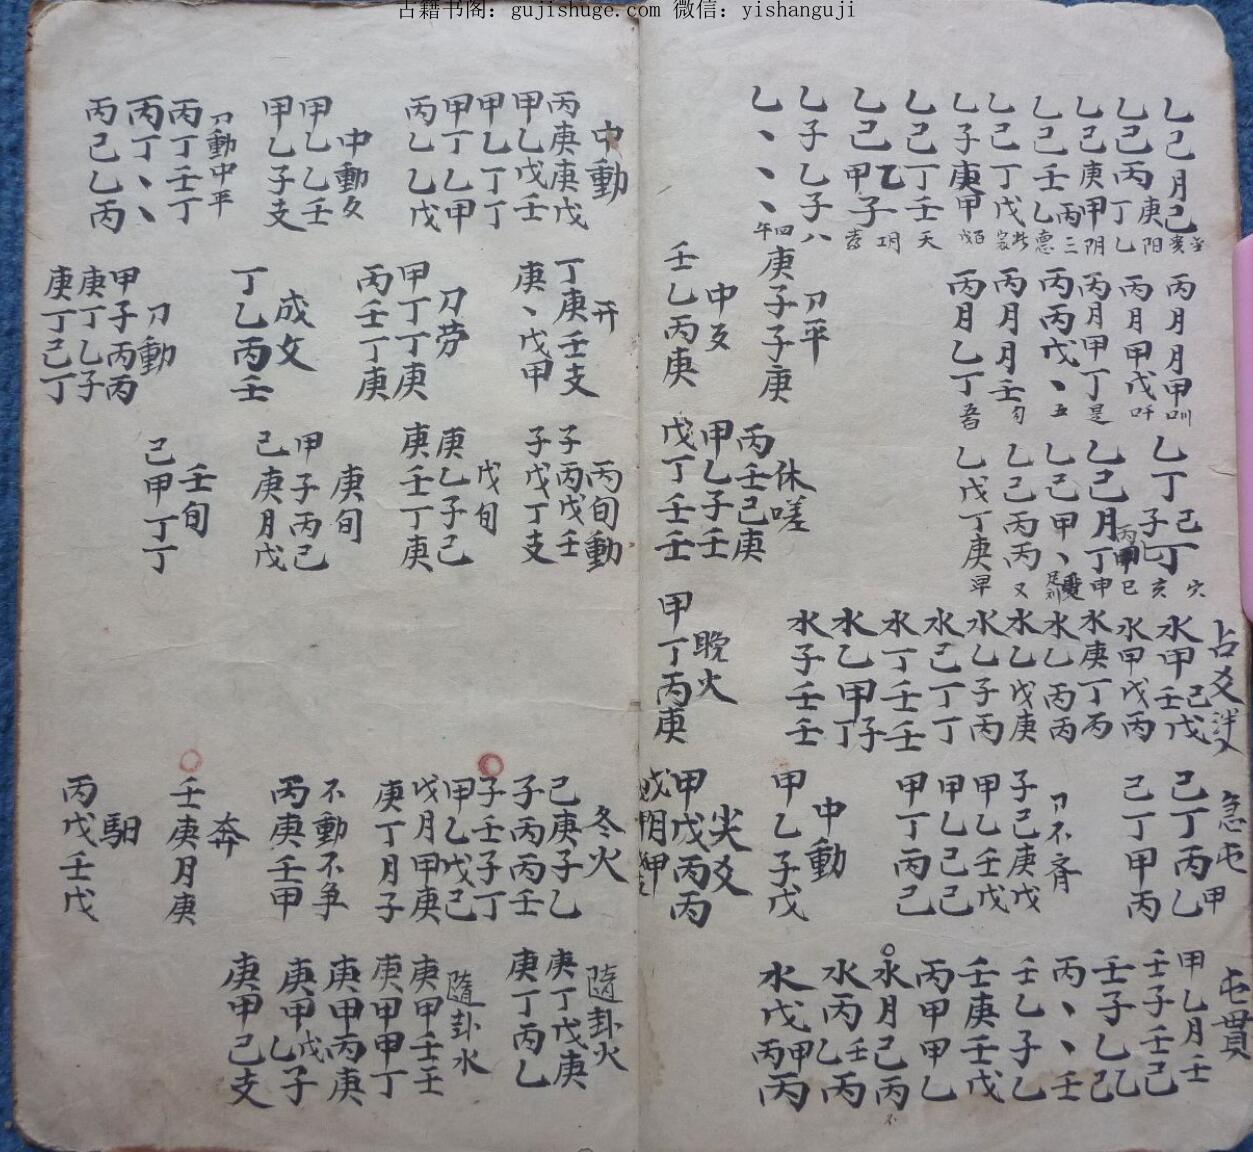 古籍书阁：gujishuge.com 微信：yishanguji
乙己月己
乙己丙丁
乙己庚甲
乙己壬乙
乙己丁戊
乙子庚甲
乙己丁壬
乙己甲子
乙子乙子八
乙丶丶丶
丙月月甲
丙月甲戊
丙月甲丁是
丙丙戊丶五
丙月月壬
丙月乙丁
刀平
庚子子庚
中爻
壬乙丙庚
乙己月丁申
乙己甲丶
乙己丙丙又
乙戊丁庚
休嗟
丙壬己庚
甲乙子壬
戊丁壬壬
占爻
水甲壬戊
水甲戊丙
水庚丁丙
水乙丙丙
水乙戊庚
水乙子丙
水己丁丁
水丁壬壬
水乙甲丁子
水子壬壬
晚火
甲丁丙庚
急屯
己丁丙乙甲
己丁甲丙
刀不齐
子己庚戊
甲乙壬戊
甲乙己己
甲丁丙己
中動
甲乙子戊
尖爻
甲戊丙丙
屯貫
甲乙月壬
壬子壬己
壬子乙己乙
丙丶丶壬
壬乙子乙
壬庚壬戊
丙甲甲乙
水月己丙
水丙乙壬丙
水戊丙甲丙
中動
丙庚庚戊
甲乙戊壬
甲乙丁丁
甲丁乙甲
丙乙乙戊
中動爻
甲乙乙壬
甲乙子支
刀動中平
丙丁壬丁
丙丁丶丶
丙己乙丙
开
丁庚壬支
庚丶戊甲
刀劳
甲丁丁庚
丙壬丁庚
成爻
丁乙丙壬
刀動
甲子丙丙
庚丁乙子
庚丁己丁
丙旬動
子丙戊壬
子戊丁支
戊旬
庚乙子己
庚壬丁庚
庚旬
甲子丙己
己庚月戊
壬旬
己甲丁丁
冬火
己庚子乙
子丙丙壬
子壬子丁
甲乙戊己
戊月甲庚
庚丁月子
不動不争
丙庚壬甲
奔
壬庚月庚
馹
丙戊壬戊
隨卦火
庚丁戊庚
庚丁丙乙
隨卦水
庚甲壬壬
庚甲甲丁
庚甲丙庚
庚甲乙戊子
庚甲己支